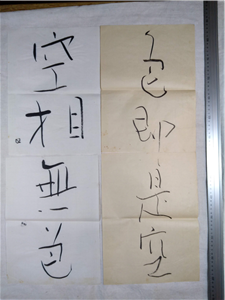 色即是空
空相無色